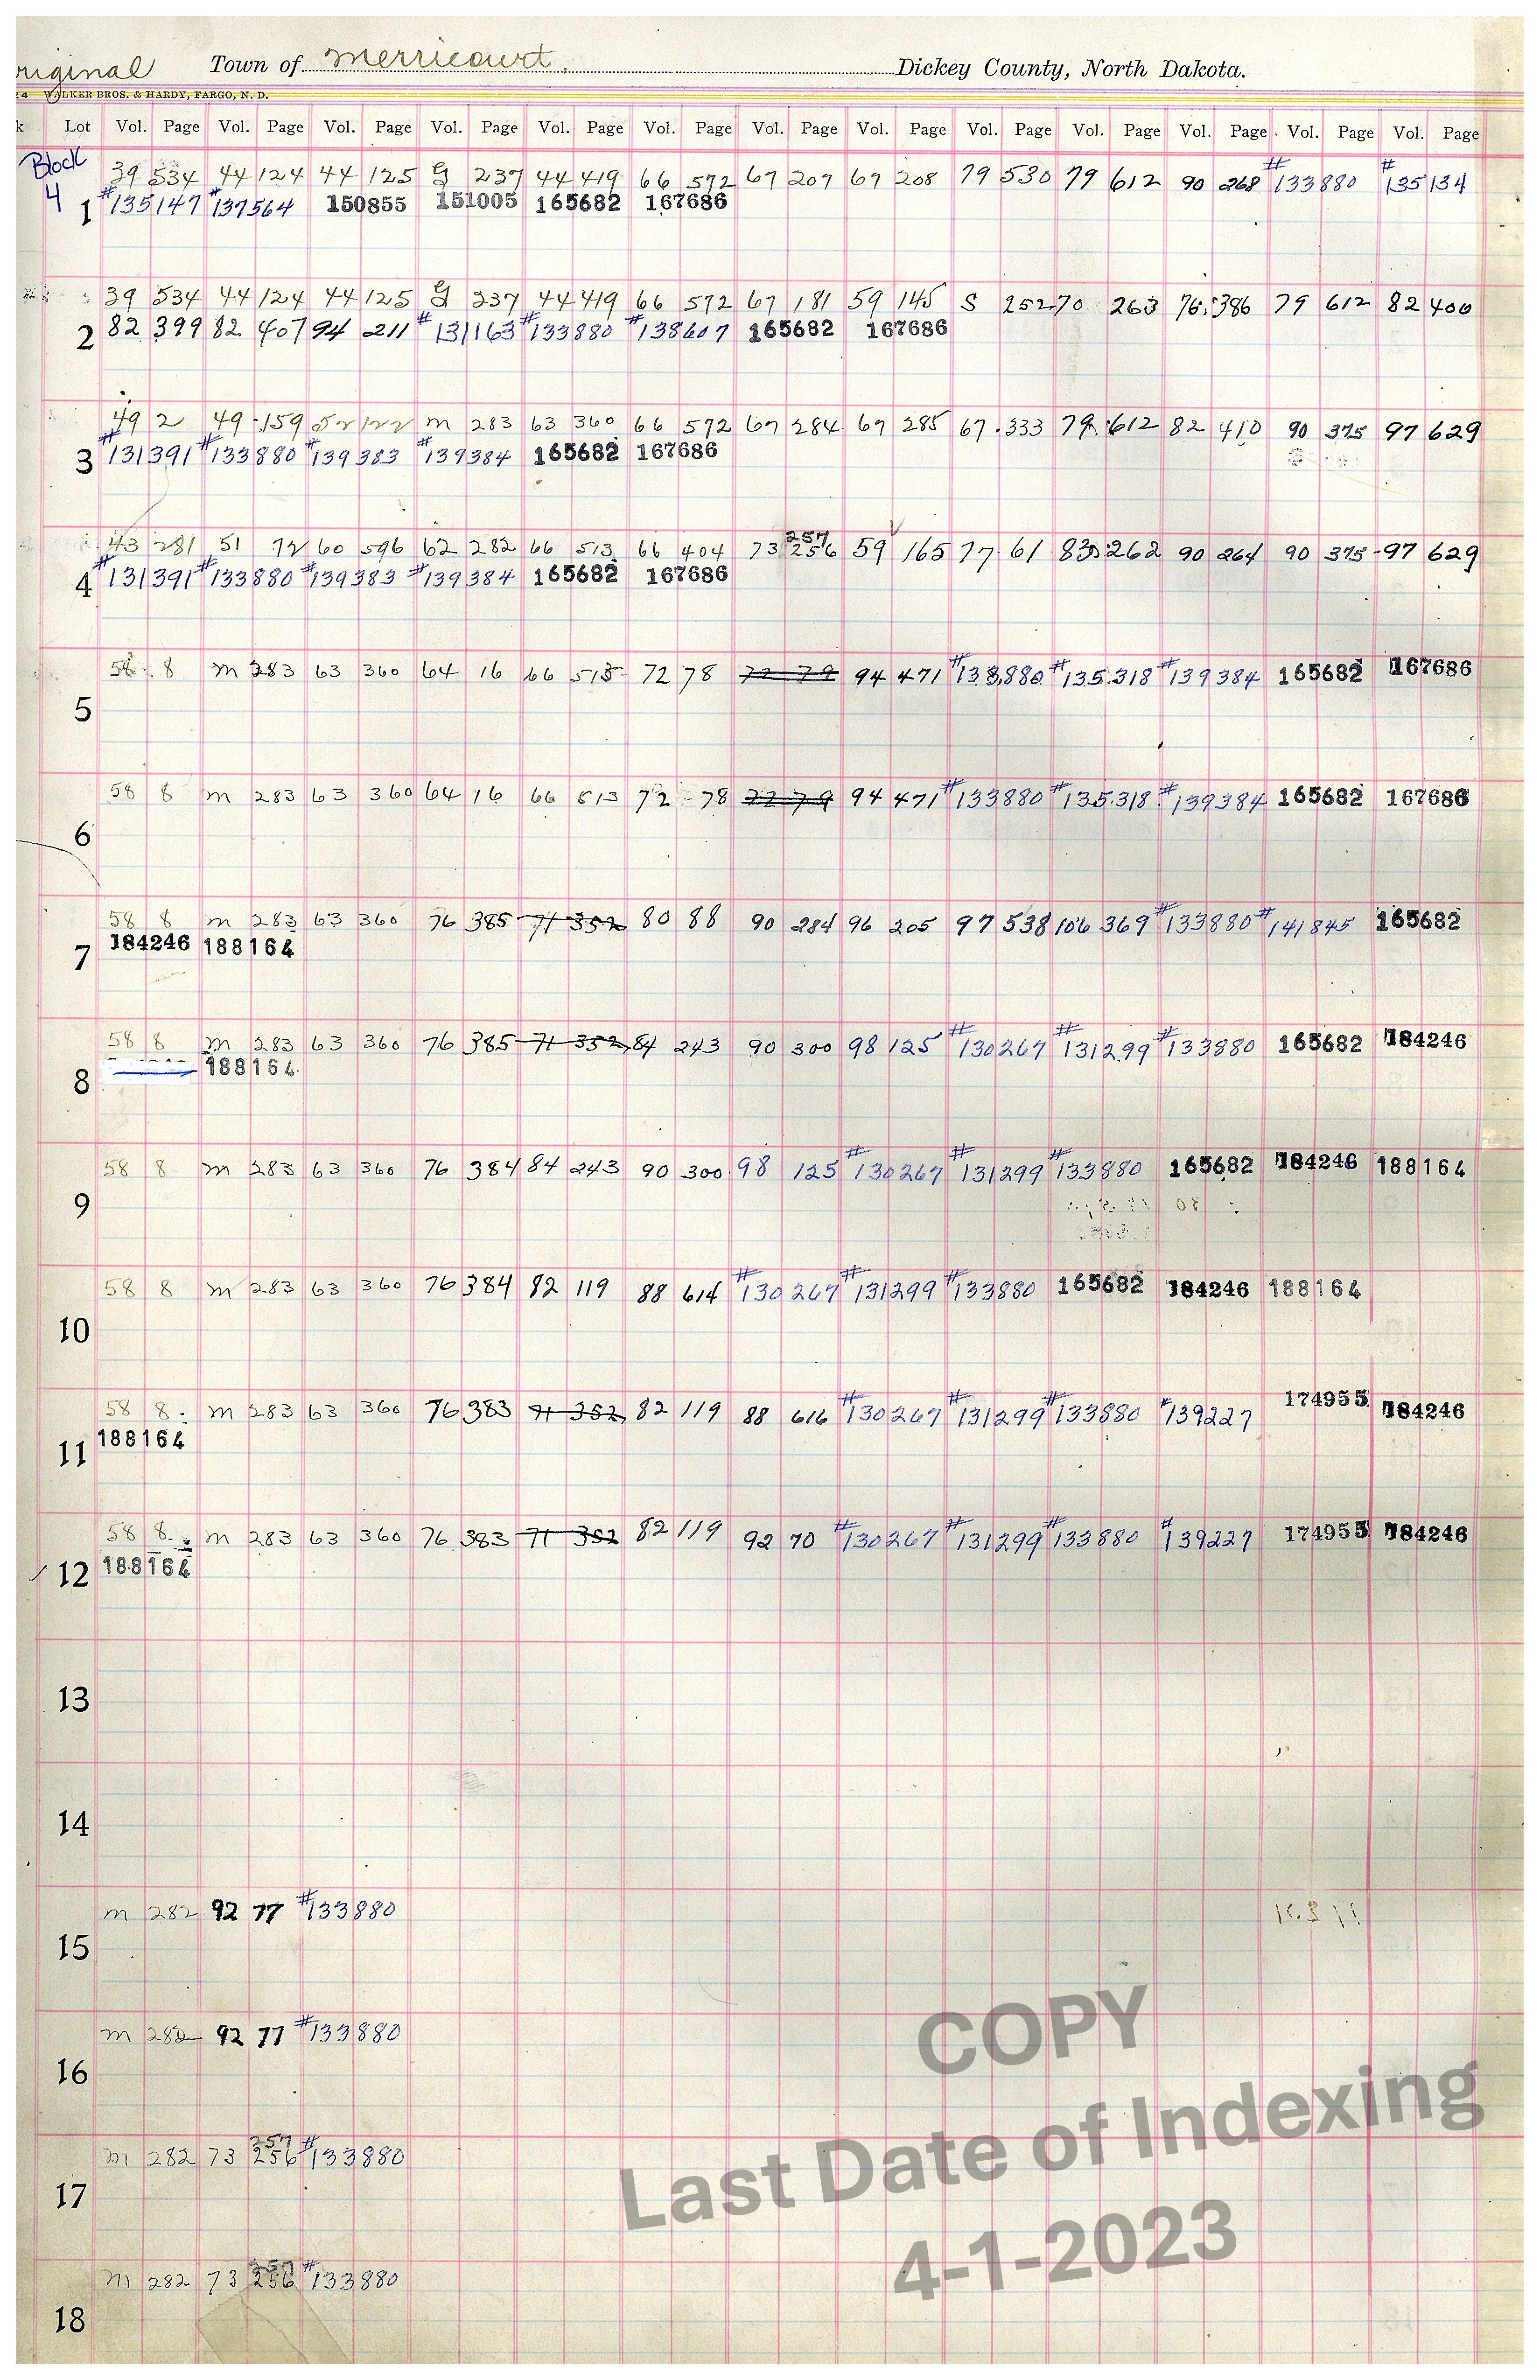 riginal Town of Merricourt. Dickey County, North Dakota.
24 WALKER BROS. & HARDY, FARGO, N. D.
k Lot Vol. Page Vol. Page Vol. Page Vol. Page Vol. Page Vol. Page Vol. Page Vol. Page Vol. Page Vol. Page Vol. Page Vol. Page Vol. Page
Block 39 534 44 124 44 125 G 237 44 419 66 572 67 207 67 208 79 530 79 612 90 268 #133880 #135134
4 1 #135147 #137564 150855 151005 165682 167686
39 534 44 124 44 125 G 237 44 419 66 572 67 181 59 145 S 252 70 263 76 386 79 612 82 400
2 82 399 82 407 94 211 #131163 #133880 #138607 165682 167686
49 2 49 159 52 122 M 283 63 360 66 572 67 284 67 285 67 333 79 612 82 410 90 375 97 629
3 #131391 #133880 #139383 #139384 165682 167686
257
43 281 51 72 60 596 62 282 66 513 66 404 73 256 59 165 77 61 83 262 90 264 90 375 97 629
4 #131391 #133880 #139383 #139384 165682 167686
58 8 M 283 63 360 64 16 66 515 72 78 72 79 94 471 #133880 #135318 #139384 165682 167686
5
58 8 M 283 63 360 64 16 66 513 72 78 72 79 94 471 #133880 #135318 #139384 165682 167686
6
58 8 M 283 63 360 76 385 71 352 80 88 90 284 96 205 97 538 106 369 #133880 #141845 165682
7 184246 188164
58 8 M 283 63 360 76 385 71 352 84 243 90 300 98 125 #130267 #131299 #133880 165682 184246
8 188164
58 8 M 283 63 360 76 384 84 243 90 300 98 125 #130267 #131299 #133880 165682 184246 188164
9
58 8 M 283 63 360 76 384 82 119 88 614 #130267 #131299 #133880 165682 184246 188164
10
58 8 M 283 63 360 76 383 71 352 82 119 88 616 #130267 #131299 #133880 #139227 174955 184246
11 188164
58 8 M 283 63 360 76 383 71 352 82 119 92 70 #130267 #131299 #133880 #139227 174955 184246
12 188164
13
14
M 282 92 77 #133880
15
M 282 92 77 #133880
16
257
M 282 73 256 #133880
17
257
M 282 73 256 #133880
18
COPY
Last Date of Indexing
4-1-2023